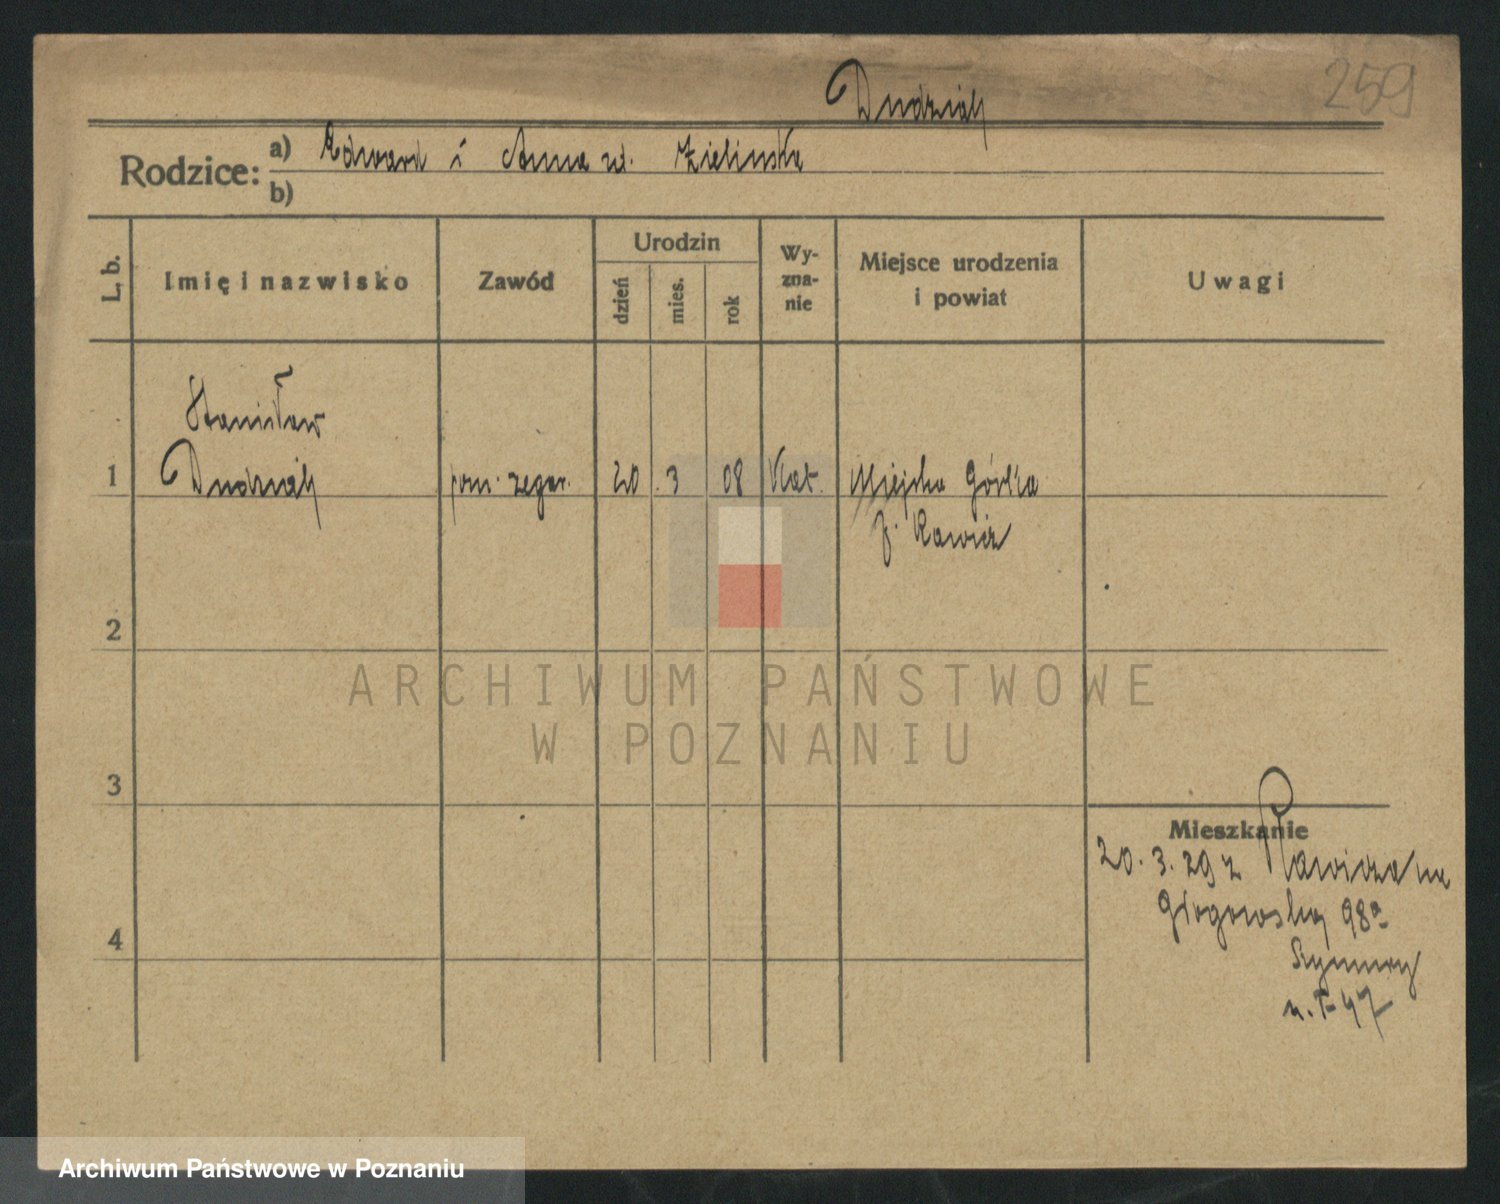 259
Dudziak
Rodzice: a) Edward i Anna ur. Zielinska
b)
L. b. Imię i nazwisko Zawód Urodzin dzień mies. rok Wy-zna-nie Miejsce urodzenia i powiat Uwagi
Stanisław
1 Dudziak pom. zegar. 20. 3 08 Kat. Miejska Górka
p. Rawicz
2
ARCHIWUM PAŃSTWOWE
W POZNANIU
3
Mieszkanie
20. 3. 29 z Rawicza na
Głogowska 98a
4
Archiwum Państwowe w Poznaniu